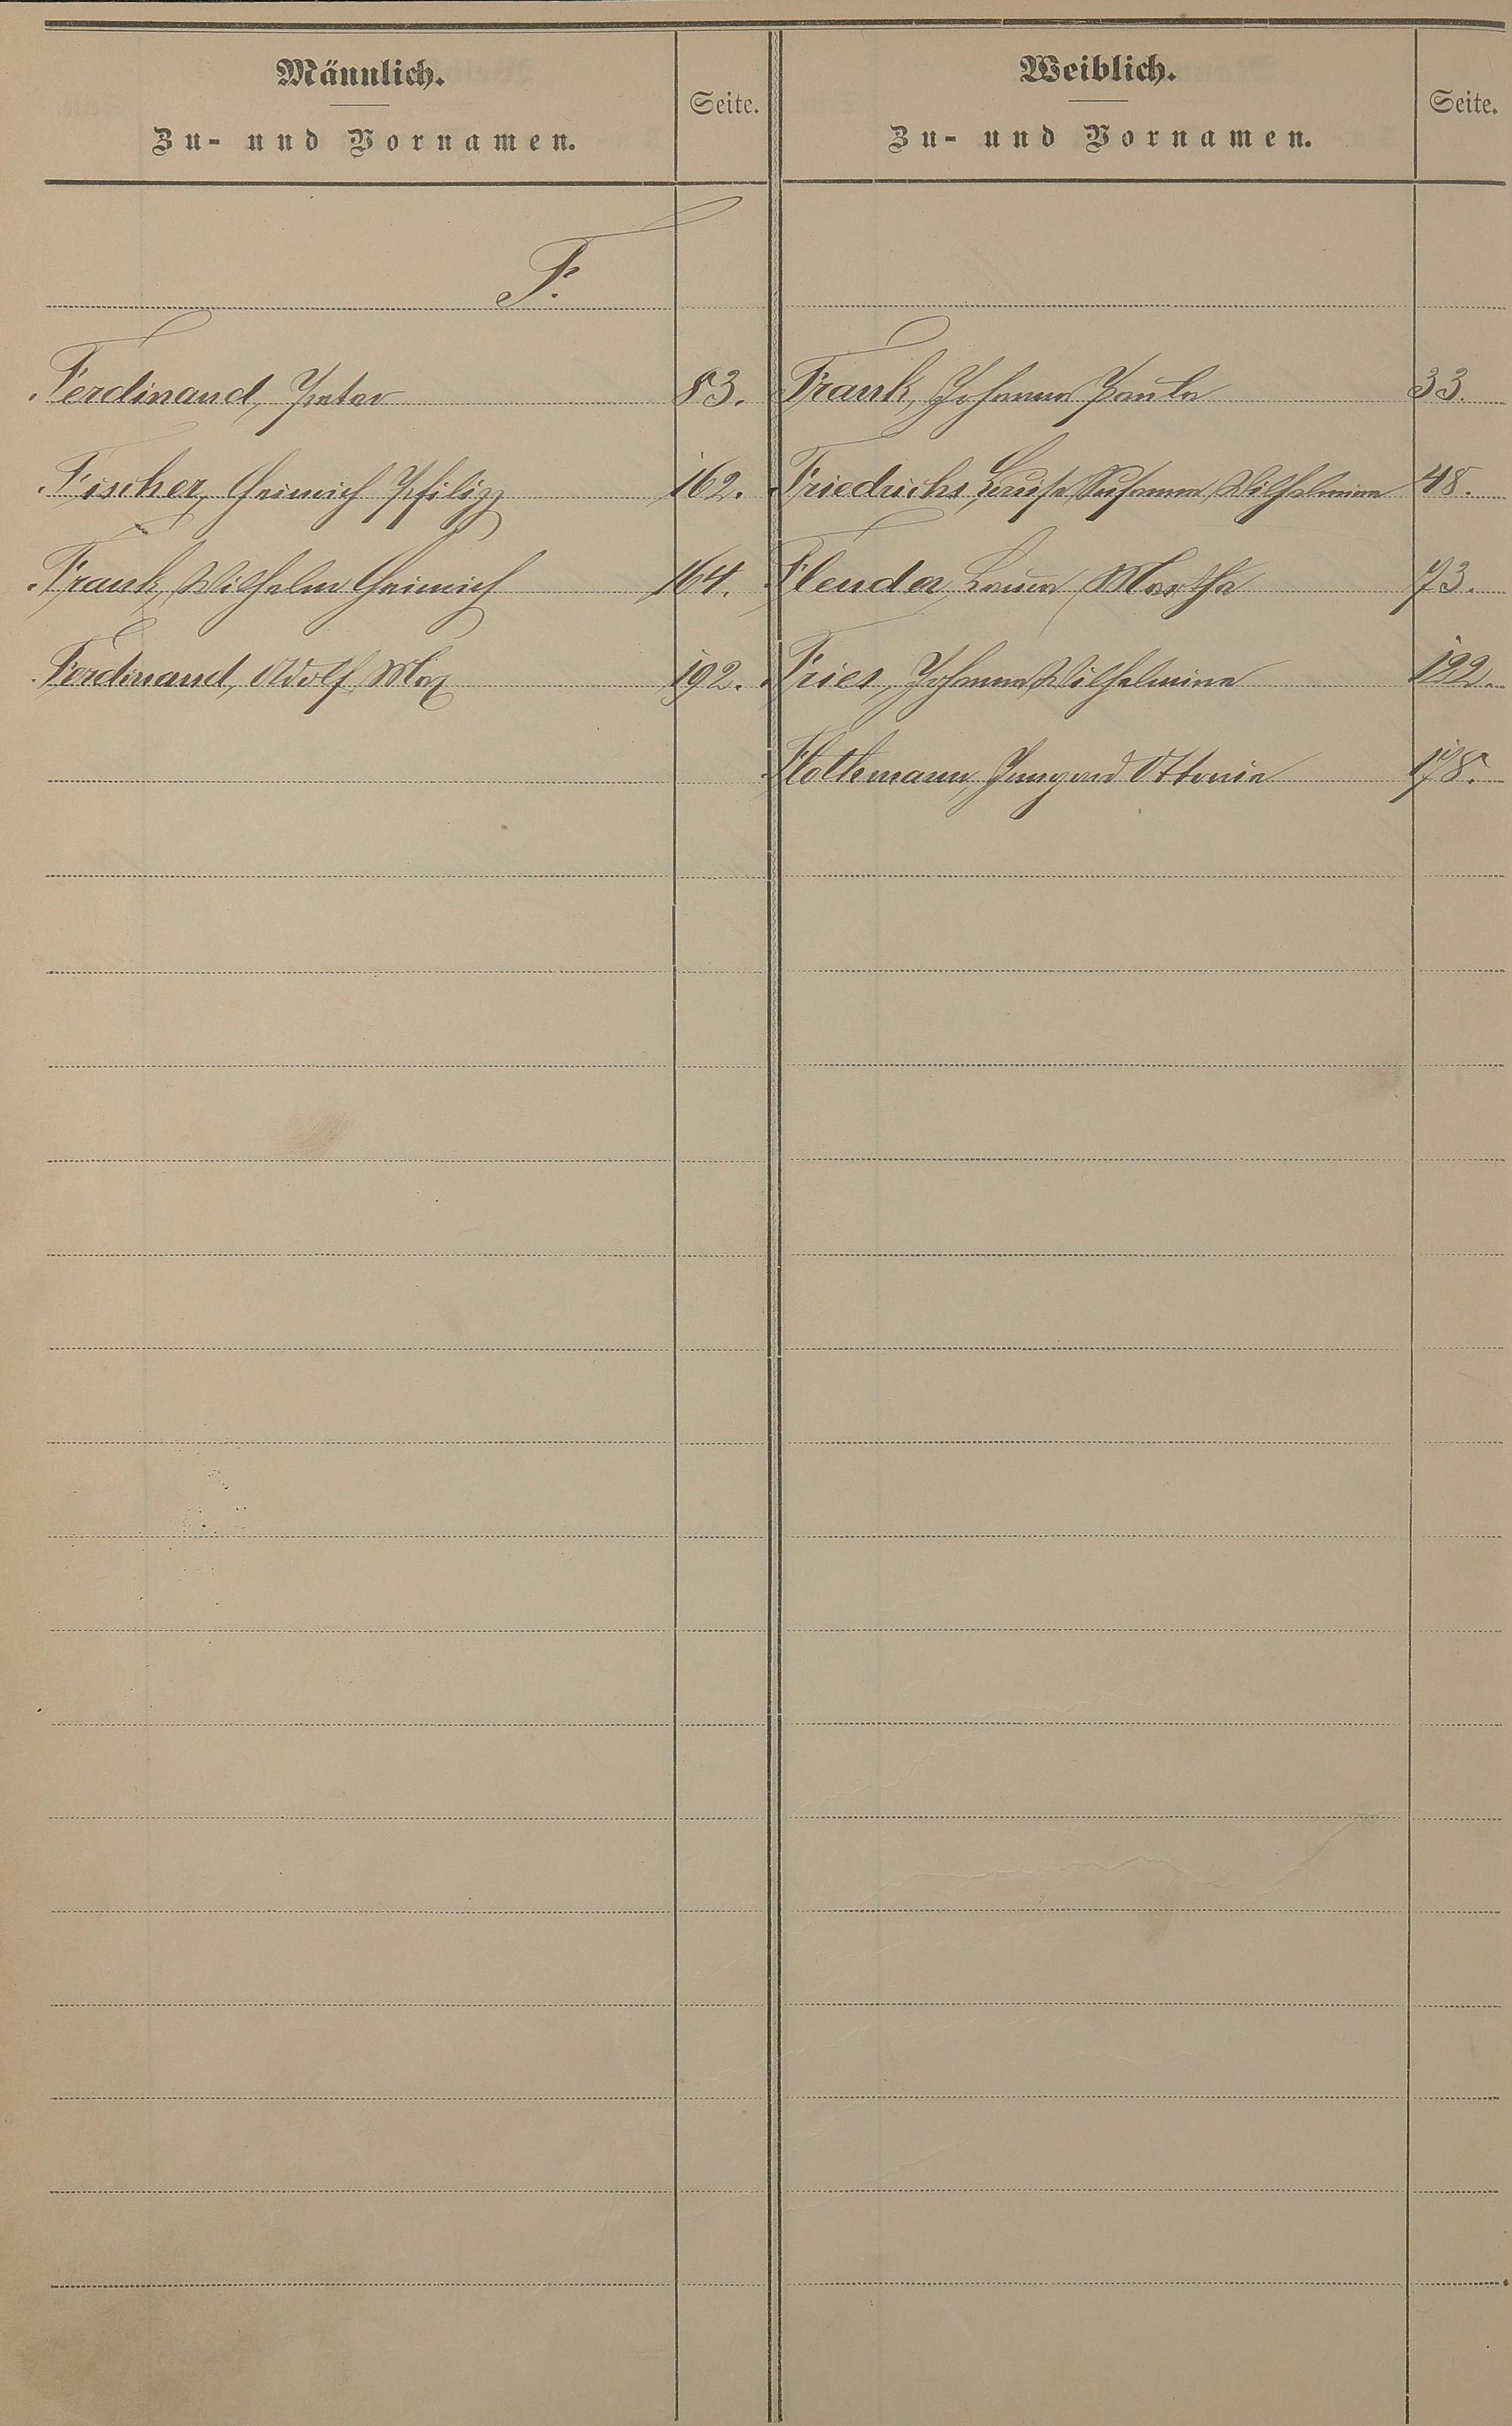 Männlich.
Zu- und Vornamen.
Seite.
Weiblich.
Zu- und Vornamen.
Seite.
F.
Ferdinand, Peter 83.
Frank, Johanna Paula 33.
Fischer, Heinrich Philipp 162.
Friedrichs, Louise Susanna Wilhelmine 48.
Frank, Wilhelm Heinrich 164.
Flender, Laura Martha 73.
Ferdinand, Adolf Max 192.
Fries, Johanna Wilhelmine 122.
Flothmann, Irmgard Ottonie 178.